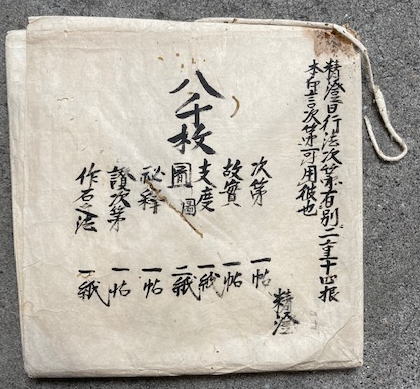 精澄云行法次第有別二重十四
本 次第可用彼也
八千枚
次第 一帖
故實 一帖
支度 一紙
圖 二紙
秘釋 一帖
讃次第 一帖
作石法 一紙
精澄